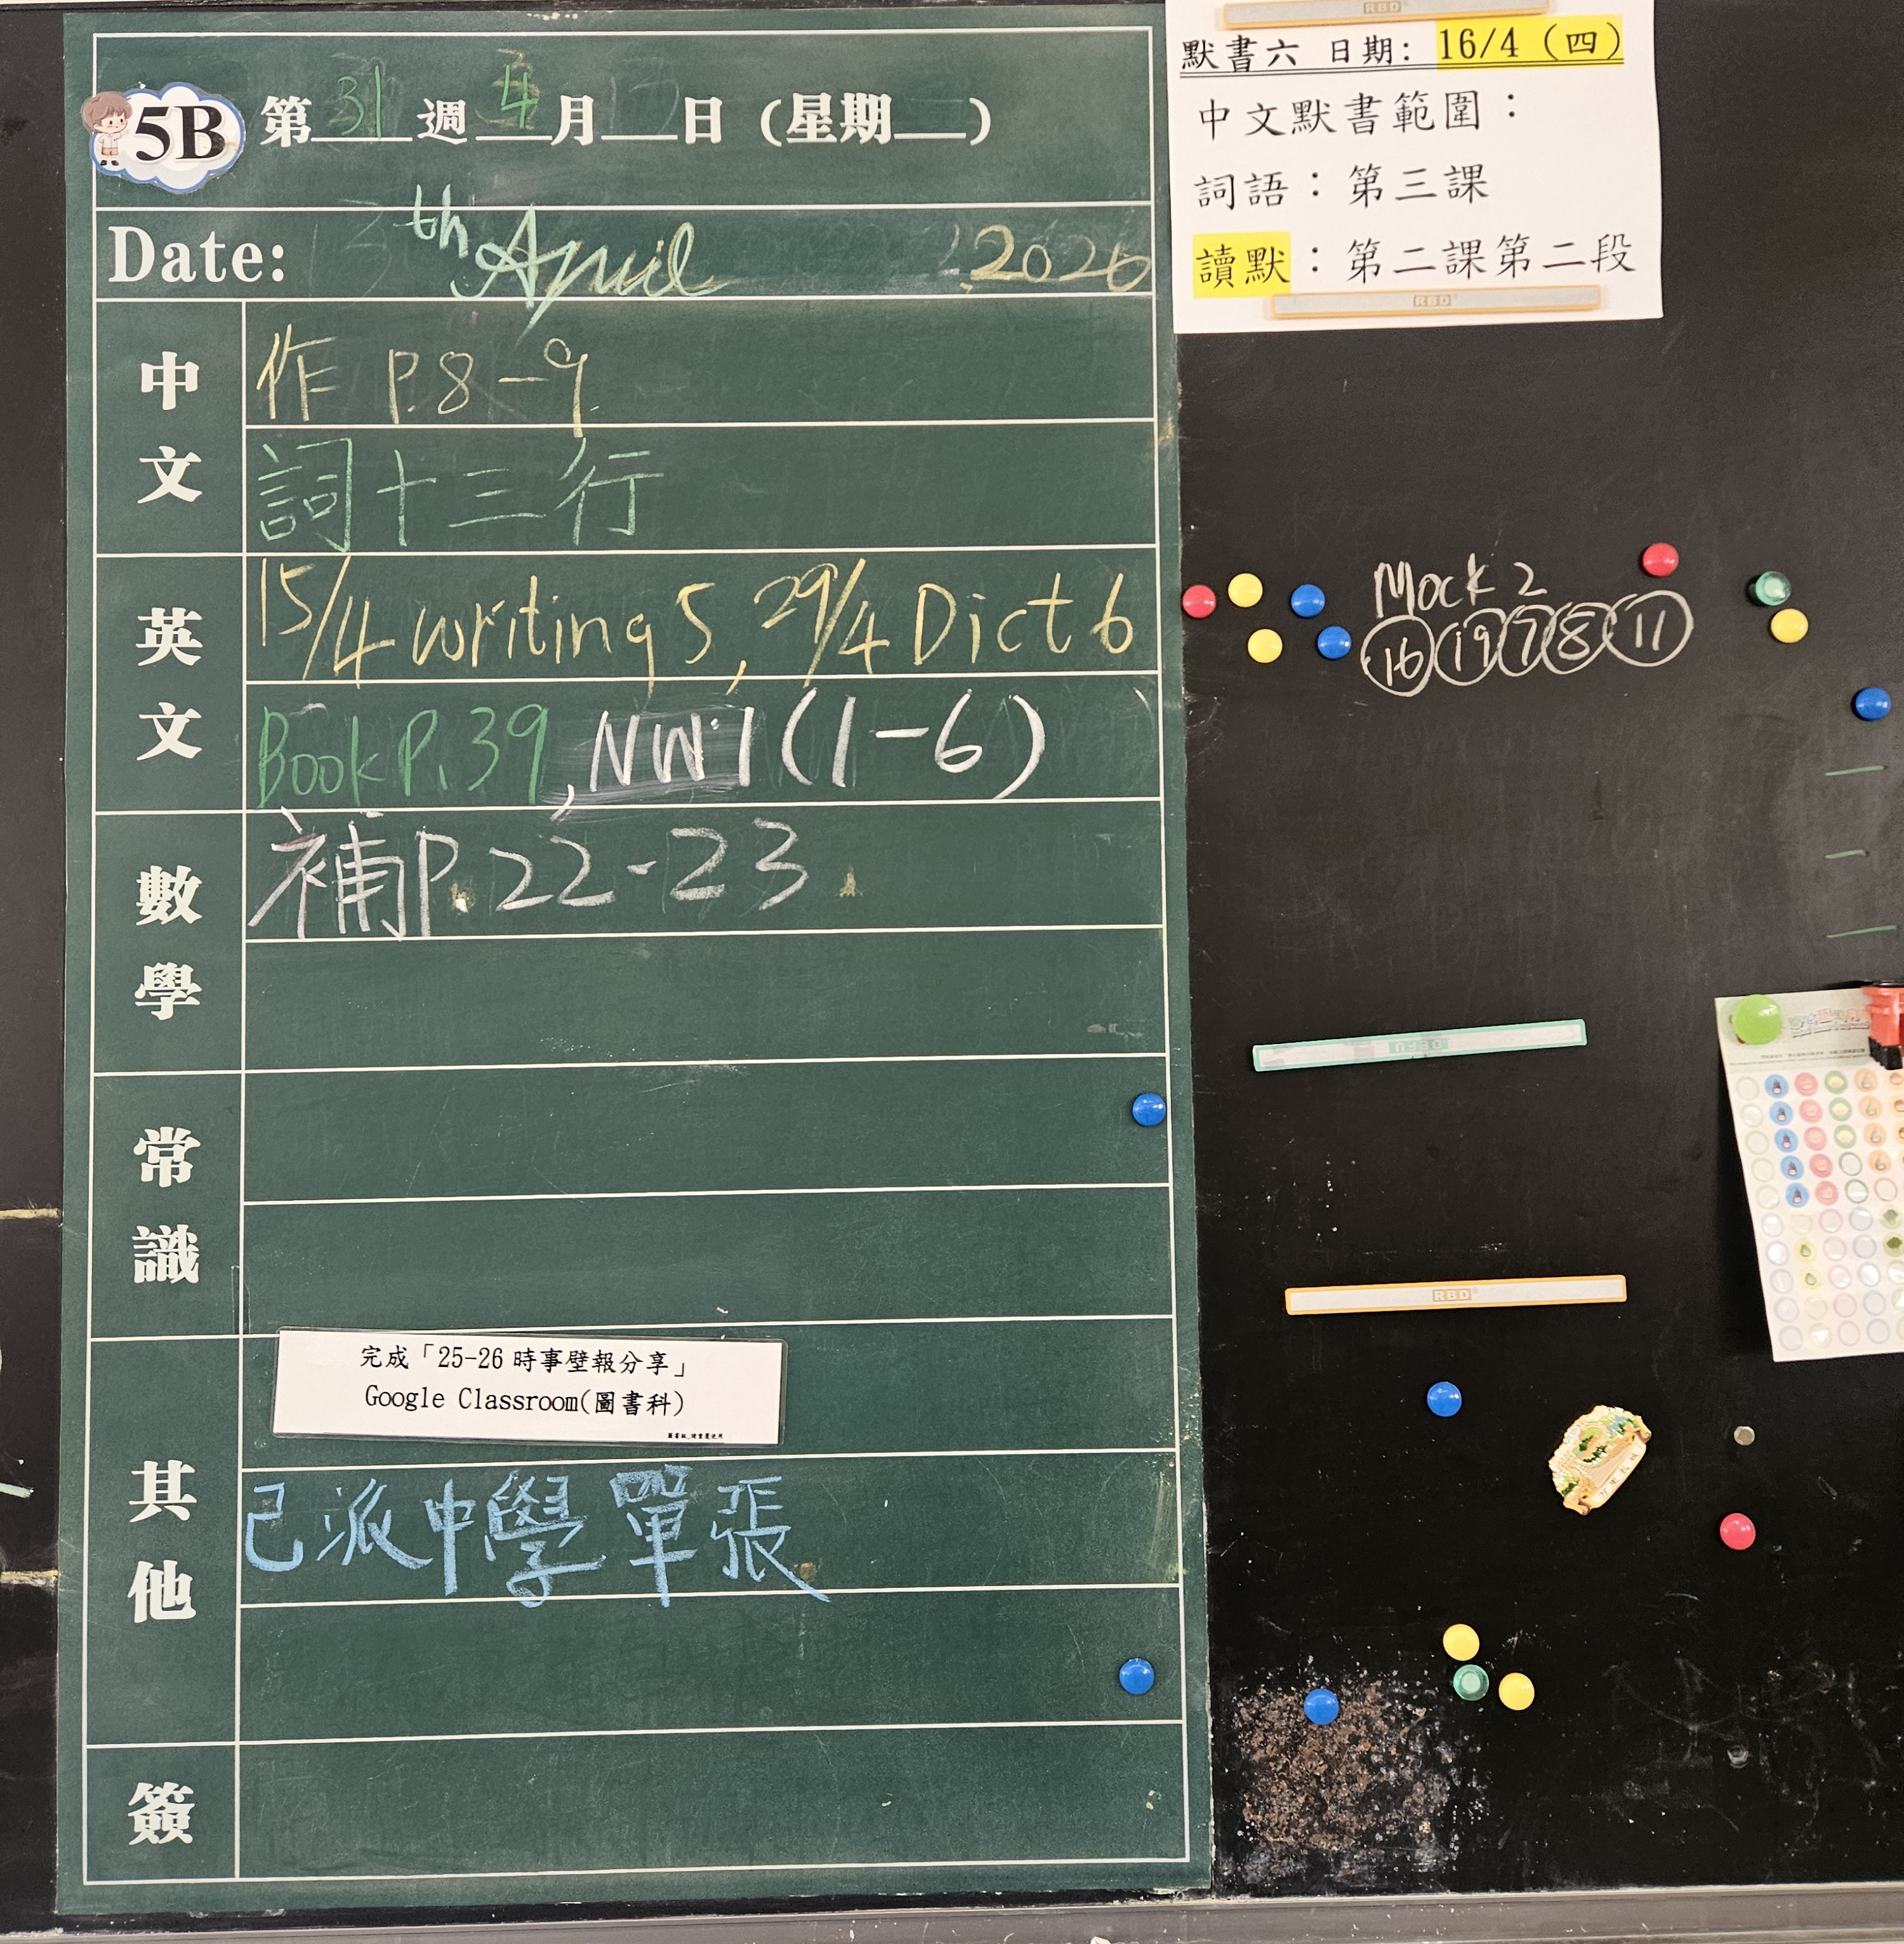 5B 第 31 週 4 月 日 (星期 )
Date: 13th April 2026
中文
作 P.8-9
詞十三行
英文
15/4 writing 5, 29/4 Dict 6
Book P.39, NW1 (1-6)
數學
補P.22-23
常識
其他
完成「25-26 時事壁報分享」
Google Classroom(圖書科)
已派中學單張
簽
RBD
默書六 日期: 16/4 (四)
中文默書範圍：
詞語：第三課
讀默：第二課第二段
RBD
Mock 2
16 19 7 8 11
RBD